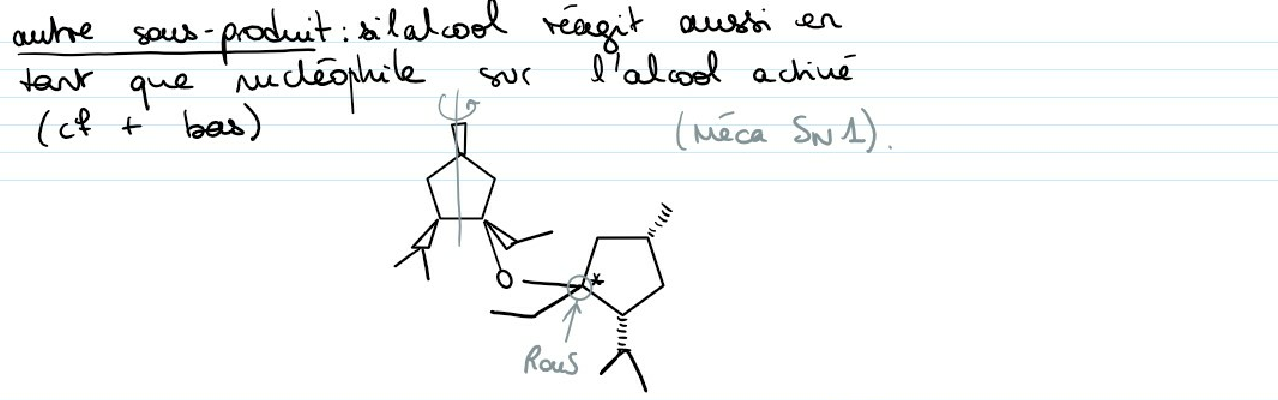 autre sous-produit : si l'alcool réagit aussi en
tant que nucléophile sur l'alcool activé
(cf + bas)
(Méca SN1).
O
*
R ou S